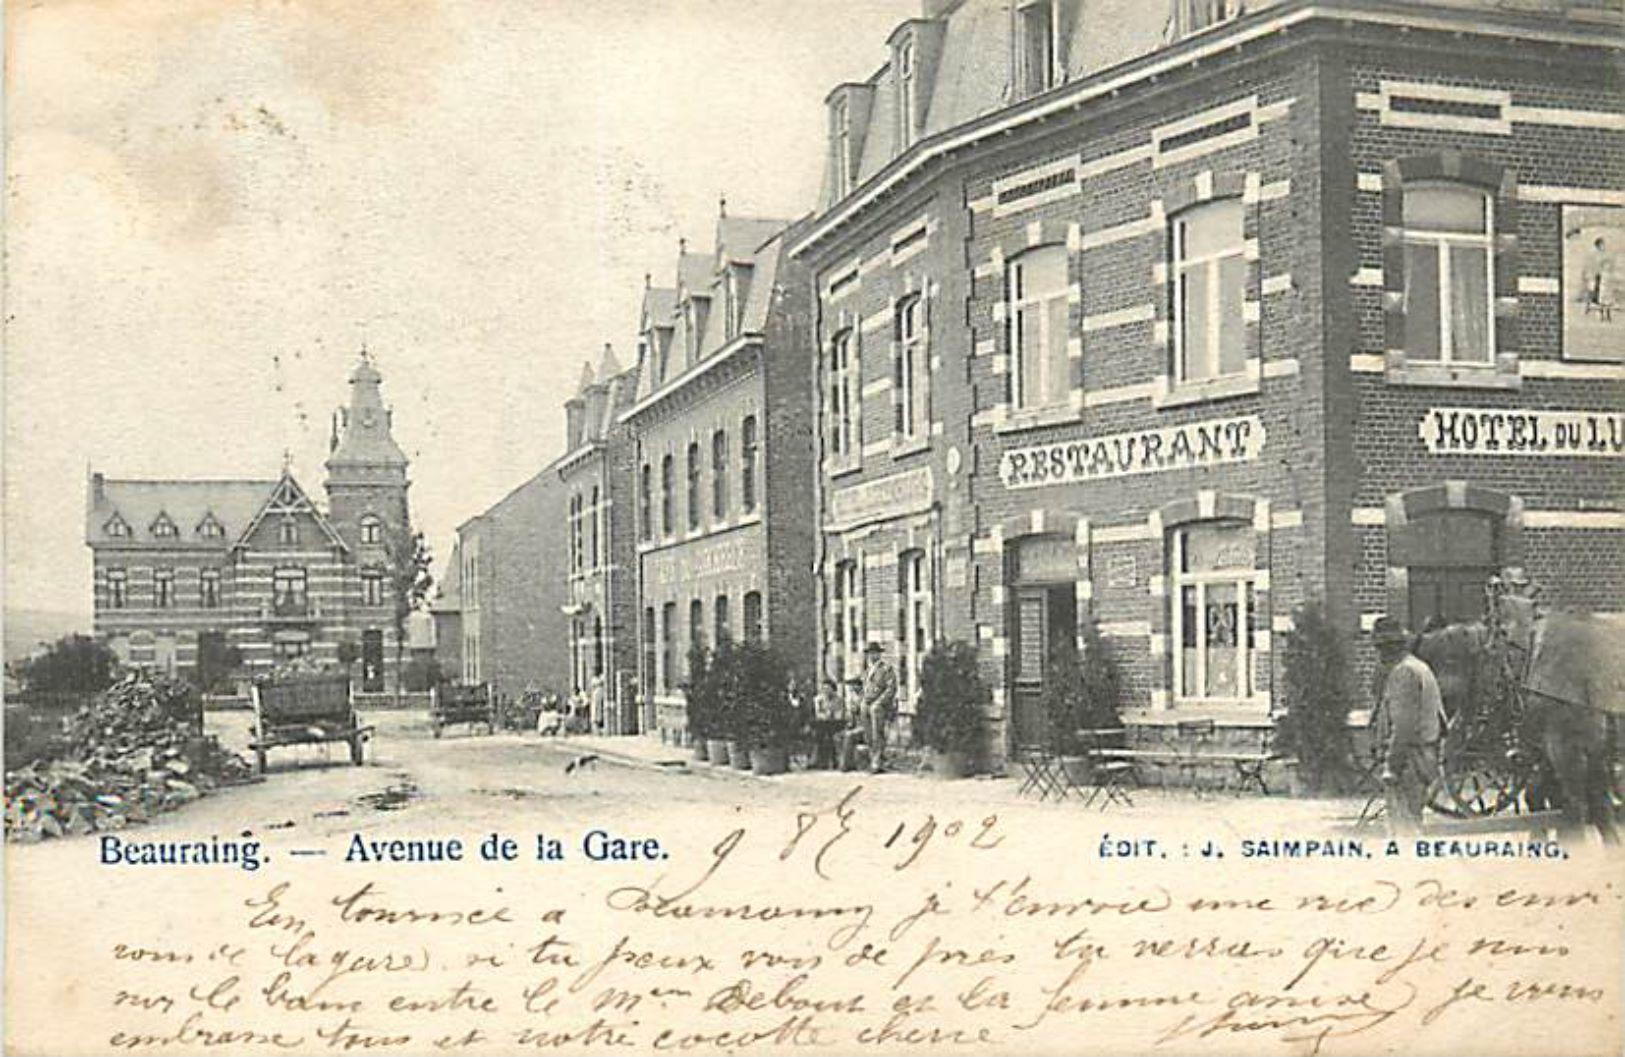 RESTAURANT
HOTEL DU LU
Beauraing. — Avenue de la Gare.
9 8bre 1902
ÉDIT. : J. SAIMPAIN, A BEAURAING.
En tournée a je t'envoie une vue des envi-
rons de la gare si tu peux voir de près tu verras que je suis
sur le banc entre le debout et la femme assise je vous
embrasse tous et notre cocotte cherie